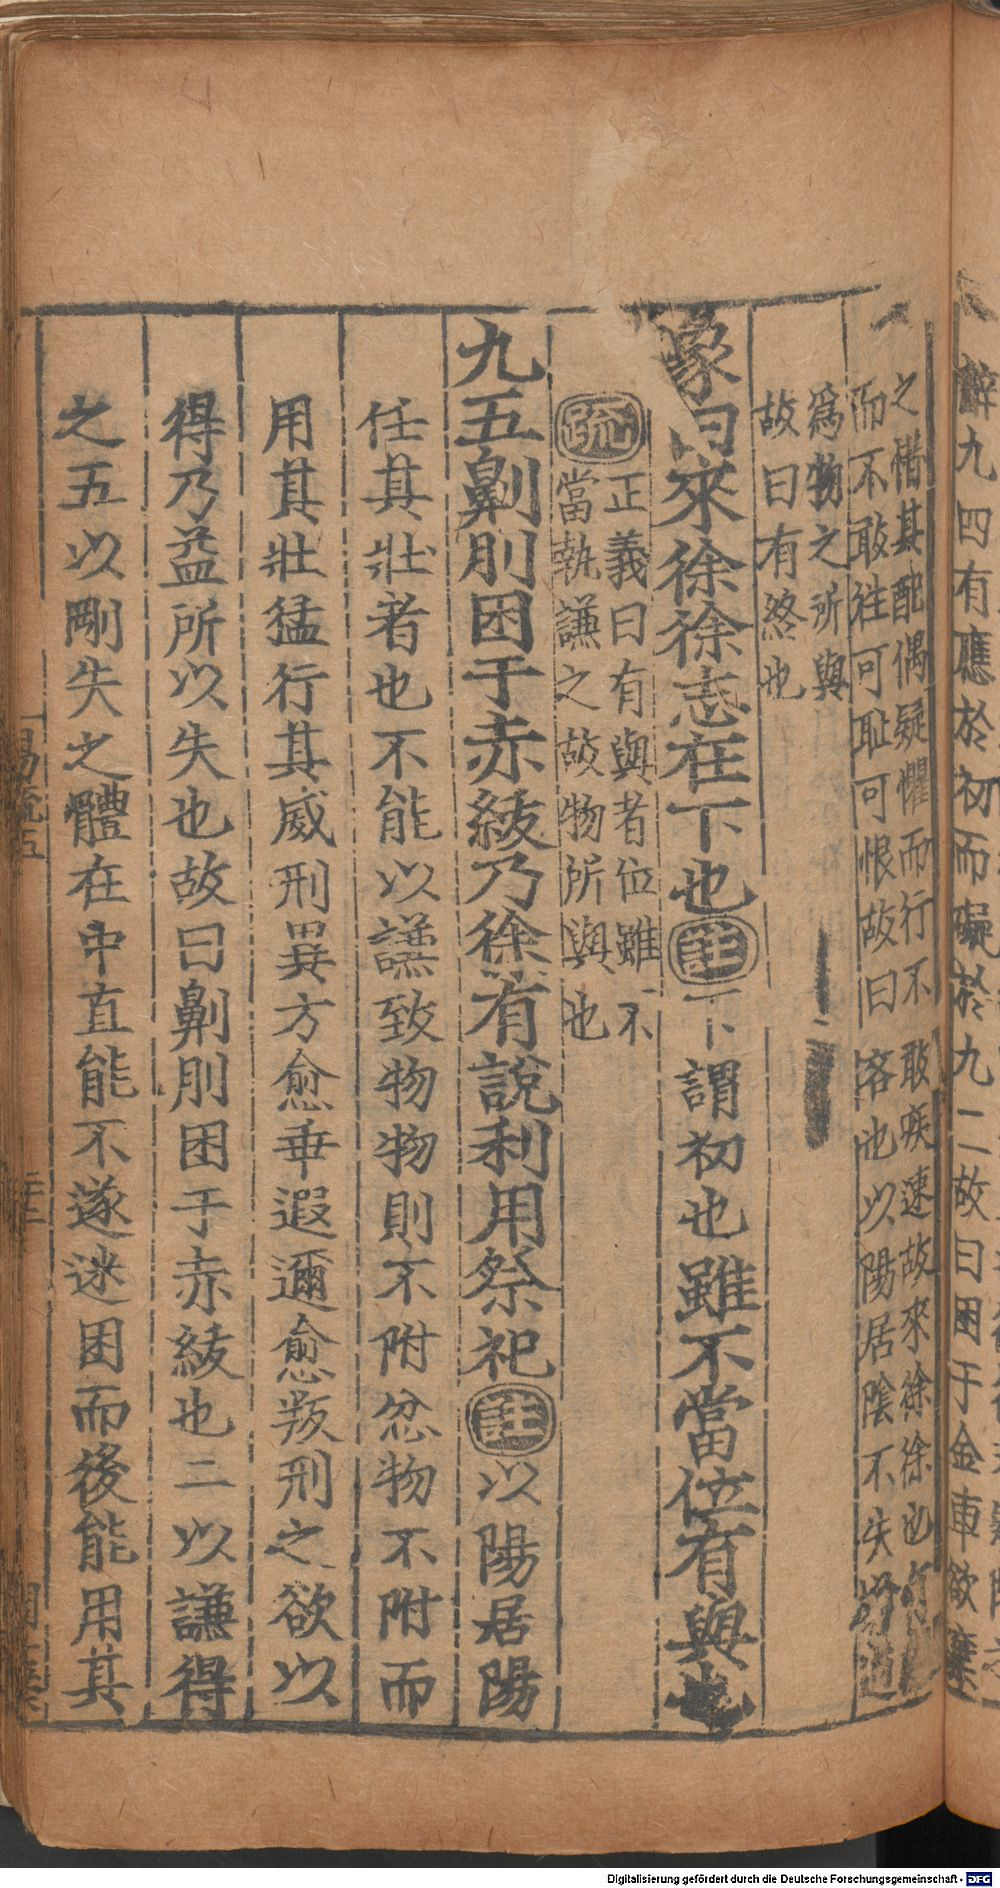 辭九四有應於初而礙於九二故曰困于金車欲棄
之惜其配偶疑懼而行不敢疾速故來徐徐也
而不敢往可恥可恨故曰吝也以陽居陰不失
爲物之所與
故曰有終也
象曰來徐徐志在下也註下謂初也雖不當位有與也
疏正義曰有與者位雖不
當執謙之故物所與也
九五劓刖困于赤綾乃徐有說利用祭祀註以陽居陽
任其壯者也不能以謙致物物則不附忿物不附而
用其壯猛行其威刑異方愈乖遐邇愈叛刑之欲以
得乃益所以失也故曰劓刖困于赤綾也二以謙得
之五以剛失之體在中直能不遂迷困而後能用其
易疏五
Digitalisierung gefördert durch die Deutsche Forschungsgemeinschaft - DFG